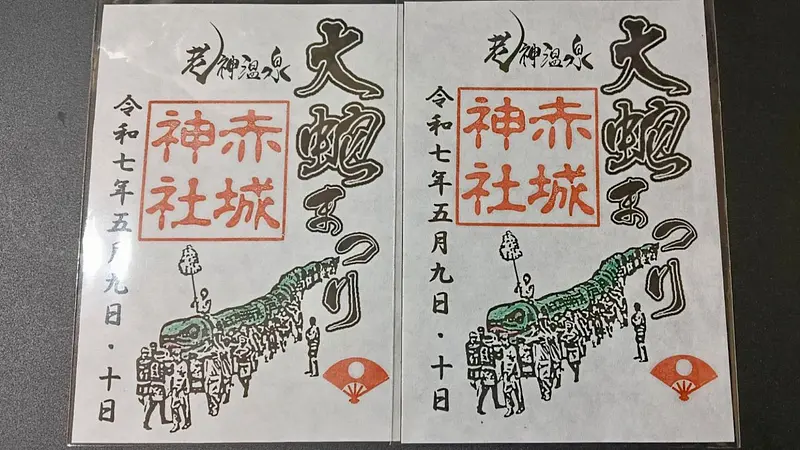 大蛇まつり
老神温泉
赤城
神社
令和七年五月九日・十日
大蛇まつり
老神温泉
赤城
神社
令和七年五月九日・十日